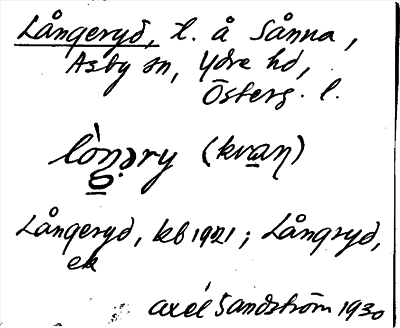 Långeryd, t. å Sånna,
Asby sn, Ydre hd,
Österg. l.
lò̱ŋ̣əry (kva̱ɳ)
Långeryd, kb 1921; Långryd,
ek
Axel Sandström 1930